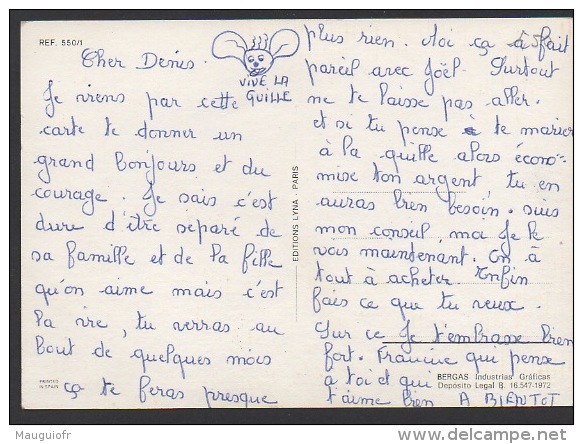 REF. 550/1
Cher Denis.
VIVE LA
QUILLE
Je viens par cette
carte te donner un
grand bonjours et du
courage. Je sais c'est
dure d'être separé de
sa famille et de la fille
qu'on aime mais c'est
la vie, tu verras au
bout de quelques mois
ça te feras presque
plus rien. Moi ça à fait
pareil avec Joël. Surtout
ne te laisse pas aller.
et si tu pense à te marier
à la quille alors écono-
mise ton argent, tu en
auras bien besoin. suis
mon conseil, moi je le
vois maintenant. On à
tout à acheter. Enfin
fais ce que tu veux.
Sur ce Je t'embrasse bien
fort. Francine qui pense
à toi et qui
t'aime bien A BIENTOT
EDITIONS LYNA - PARIS
PRINTED
IN SPAIN
BERGAS Industrias Gráficas
Depósito Legal B. 16.547-1972
Mauguiofr
delcampe.net